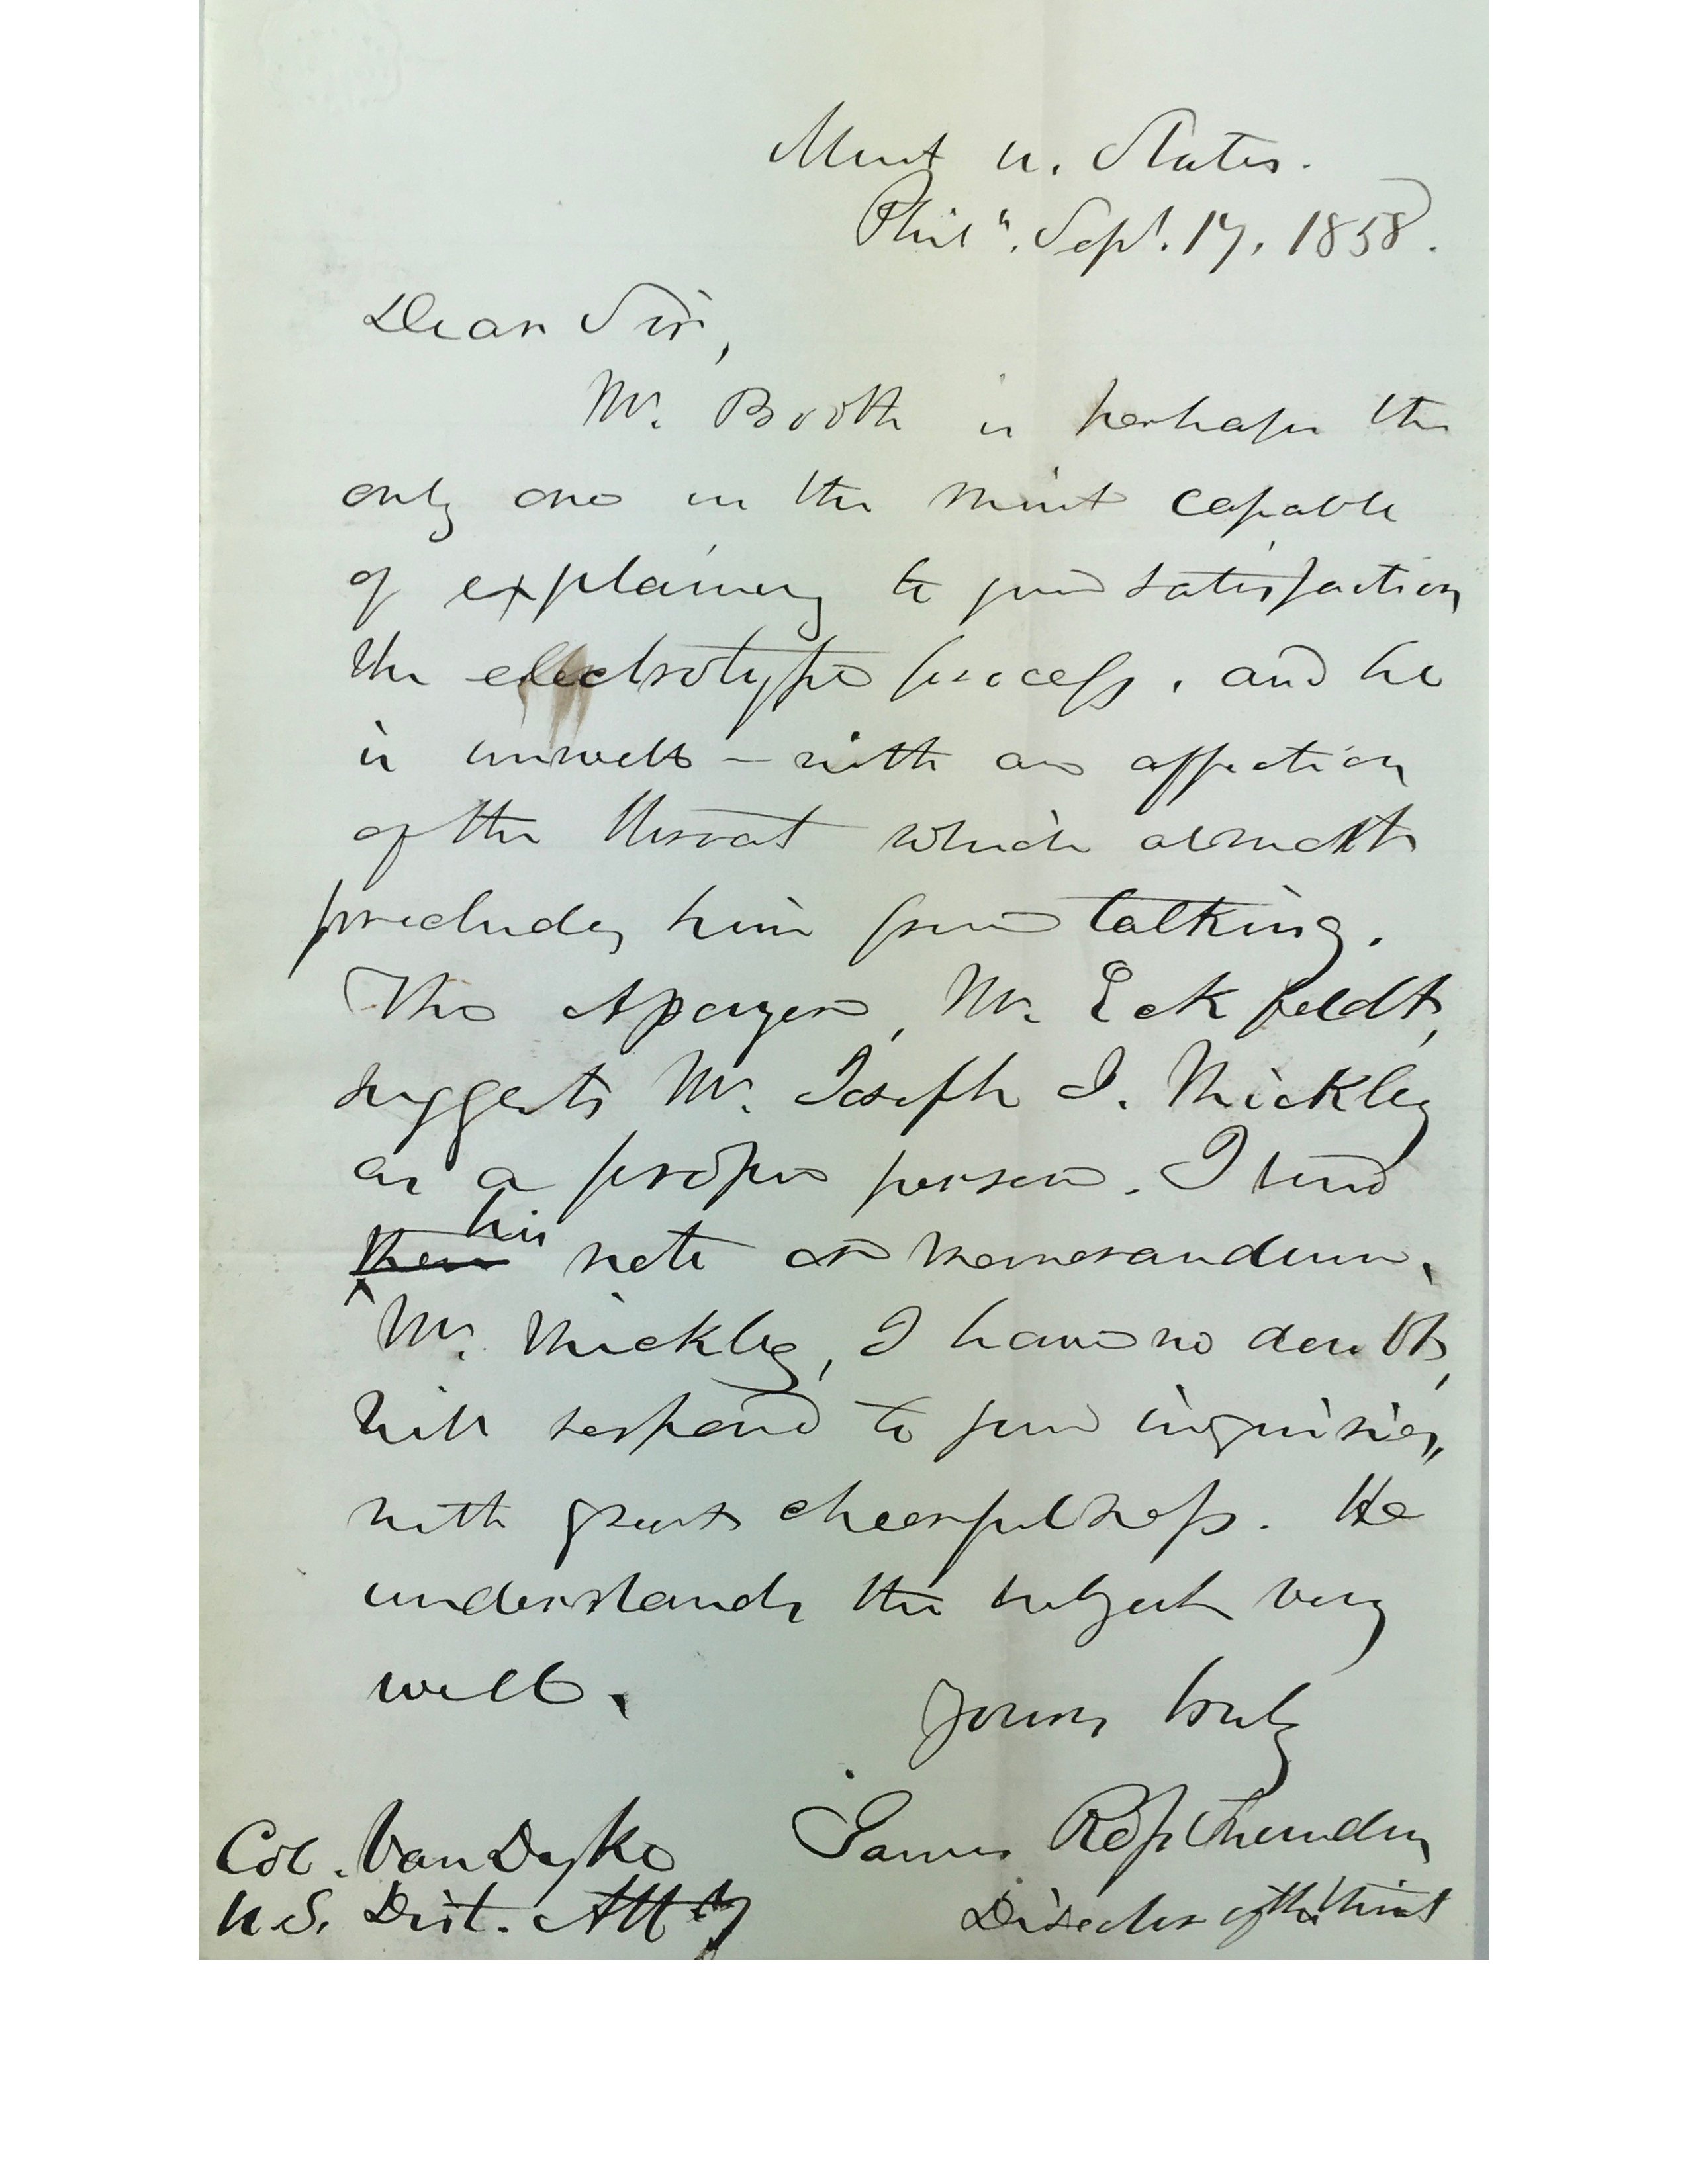 Mint U. States.
Phila. Sept. 17, 1858.
Dear Sir,
Mr. Booth is perhaps the
only one in the mint capable
of explaining to your satisfaction
the electrotype process, and he
is unwell – with an affection
of the throat which almost
precludes him from talking.
The Assayer, Mr. Eckfeldt,
suggests Mr. Joseph J. Mickley
as a proper person. I send
his
them note or memorandum.
Mr. Mickley, I have no doubt,
will respond to your inquiries,
with great cheerfulness. He
understands the subject very
well.
Yours truly
James Ross Snowden
Director of the Mint
Col. Van Dyke
U.S. Dist. Att'y